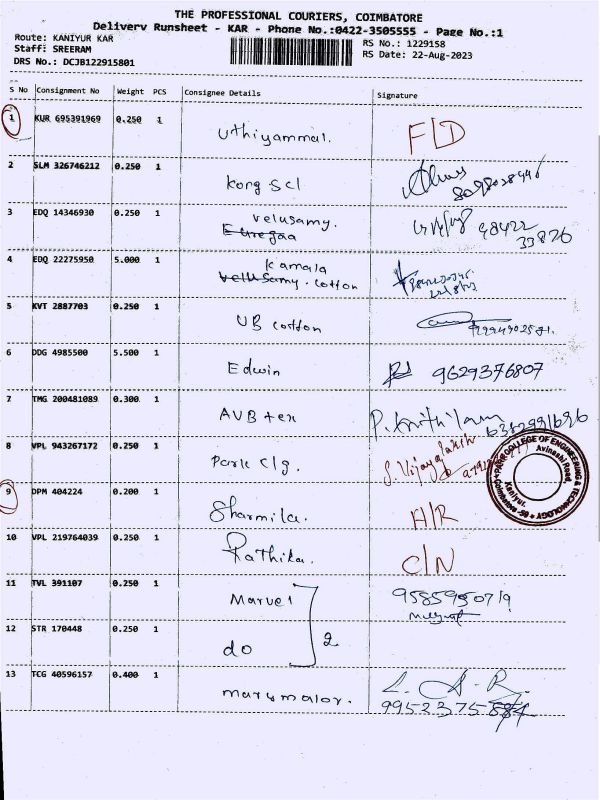 THE PROFESSIONAL COURIERS, COIMBATORE
Delivery Runsheet - KAR - Phone No.:0422-3505555 - Page No.:1
Route: KANIYUR KAR
Staff: SREERAM
DRS No.: DCJB122915801
RS No.: 1229158
RS Date: 22-Aug-2023
S No Consignment No Weight PCS Consignee Details Signature
1 KUR 695391969 0.250 1 Uthiyammal. F/D
2 SLM 326746212 0.250 1 Kong Scl
3 EDQ 14346930 0.250 1 velusamy. 98422
33826
4 EDQ 22275950 5.000 1 Kamala
Velusamy. Cotton
5 KVT 2887703 0.250 1 UB cotton
6 DDG 4985500 5.500 1 Edwin 9629376807
7 TMG 200481089 0.300 1 AVB tex
8 VPL 943267172 0.250 1 Park Clg. S. Vijayalakshmi
9 DPM 404224 0.200 1 Sharmila. H/R
10 VPL 219764039 0.250 1 Rathika. C/N
11 TVL 391107 0.250 1 Marvel
12 STR 170448 0.250 1 do 2
13 TCG 40596157 0.400 1
9952375884
COLLEGE OF ENGINEERING & TECHNOLOGY
Avinashi Road,
Kaniyur,